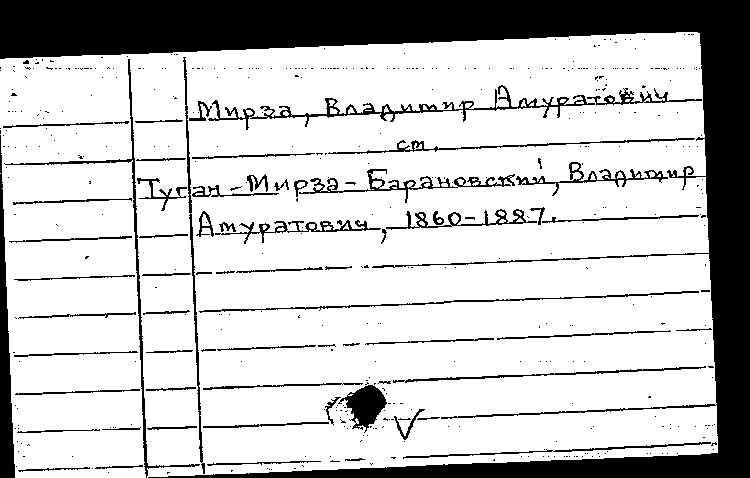 Мирза, Владимир Амуратович
см.
Туган-Мирза-Барановский, Владимир
Амуратович, 1860-1887.